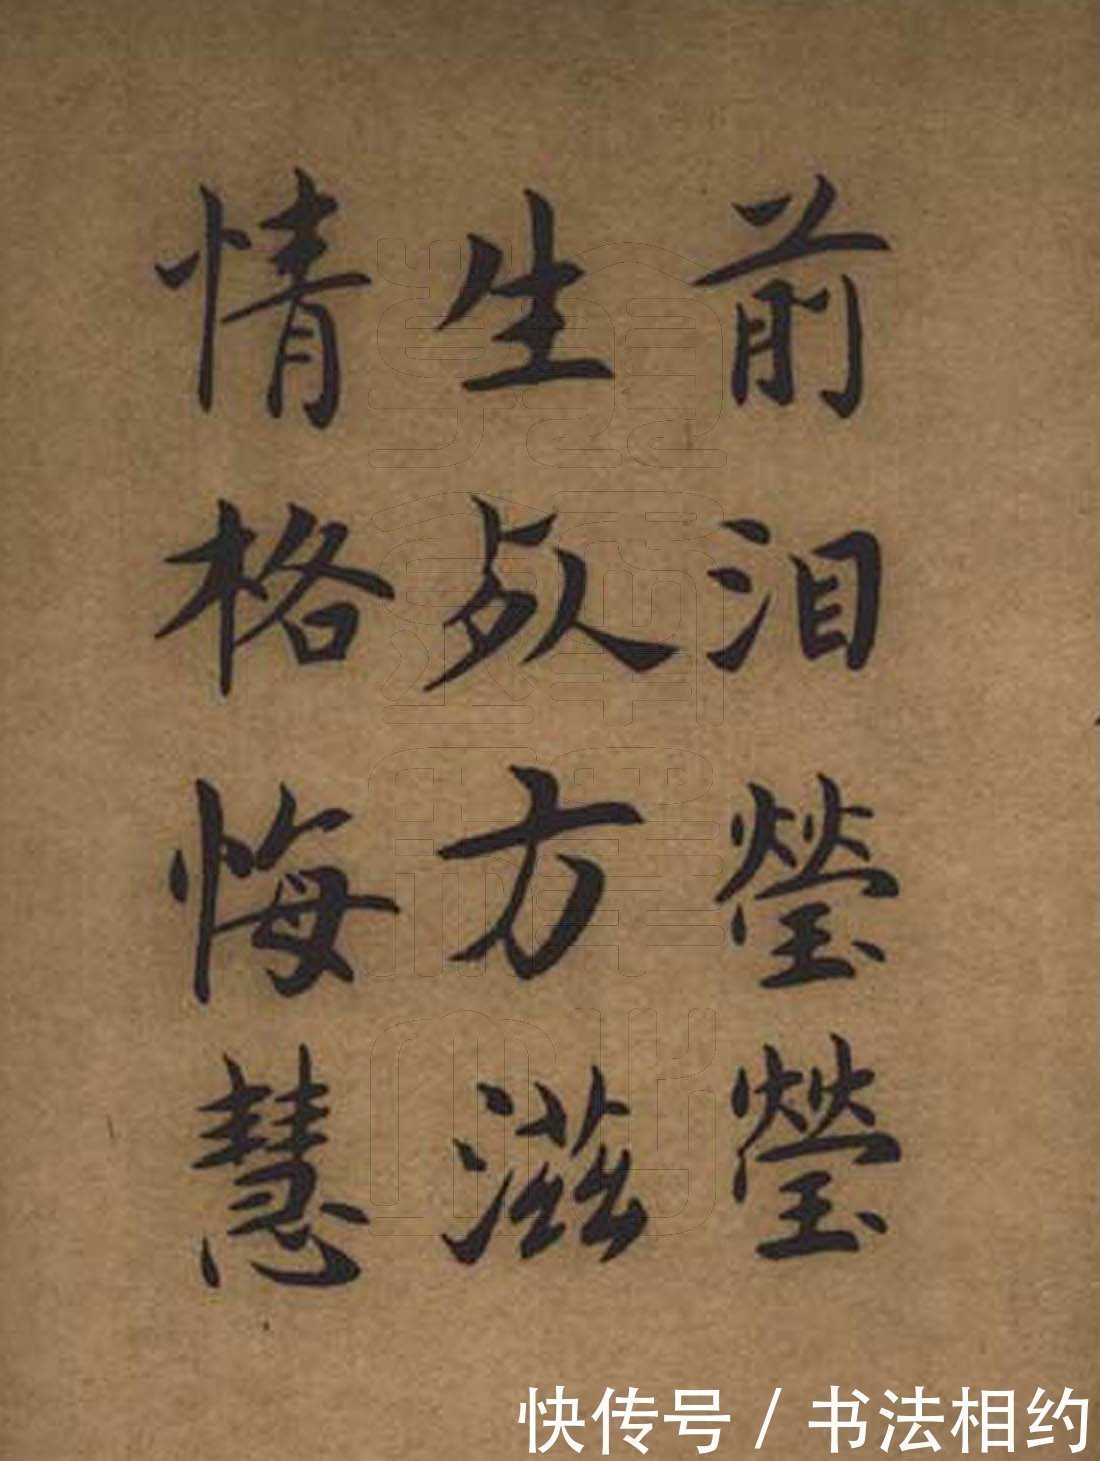 前泪瑩瑩
生死方滋
情格悔慧
快传号 / 书法相约